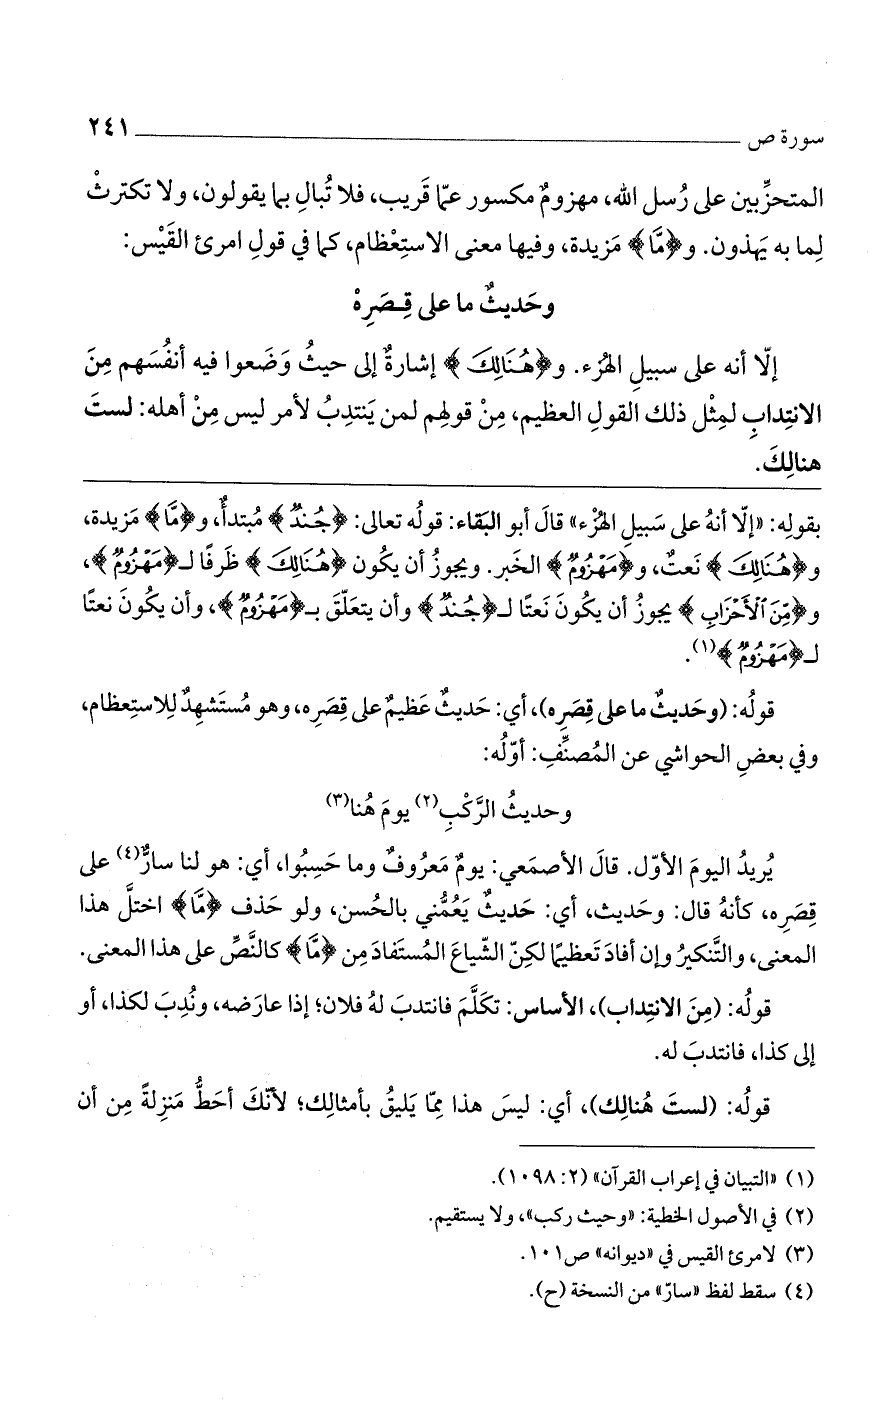 سورة ص ٢٤١
المتحزِّبين على رُسل الله، مهزومٌ مكسور عمّا قَريب، فلا تُبالِ بما يقولون، ولا تكترثْ
لِما به يَهذون. و﴿مَّا﴾ مَزيدة، وفيها معنى الاستِعْظام، كما في قولِ امرئ القَيْس:
وحَديثٌ ما على قِـصَرِهْ
إلّا أنه على سبيلِ الهُزء. و﴿هُنَالِكَ﴾ إشارةٌ إلى حيثُ وَضَعوا فيه أنفُسَهم مِنَ
الانتِدابِ لمِثْل ذلك القولِ العظيم، مِنْ قولهم لمن يَنتدِبُ لأمر ليس مِنْ أهله: لستَ
هنالِكَ.
بقولِه: «إلّا أنهُ على سَبيلِ الهُزْء» قالَ أبو البَقاء: قولُه تعالى: ﴿جُندٌ﴾ مُبتدأٌ، و﴿مَّا﴾ مَزيدة،
و﴿هُنَالِكَ﴾ نَعتٌ، و﴿مَهْزُومٌ﴾ الخَبر. ويجوزُ أن يكون ﴿هُنَالِكَ﴾ ظَرفًا لـ﴿مَهْزُومٌ﴾،
و﴿مِّنَ ٱلْأَحْزَابِ﴾ يجوزُ أن يكُونَ نَعتًا لـ﴿جُندٌ﴾ وأن يتعلّقَ بـ﴿مَهْزُومٌ﴾، وأن يكُونَ نعتًا
لـ﴿مَهْزُومٌ﴾(١).
قولُه: (وحَديثٌ ما على قِصَرِه)، أي: حَديثٌ عَظيمٌ على قِصَرِه، وهو مُستَشهِدٌ لِلاستِعظام،
وفي بعضِ الحواشي عن المُصنِّفِ: أوّلُه:
وحديثُ الرَّكْبِ(٢) يومَ هُنا(٣)
يُريدُ اليومَ الأوّل. قالَ الأصمَعي: يومٌ مَعرُوفٌ وما حَسِبُوا، أي: هو لنا سارٌّ(٤) على
قِصَرِه، كأنهُ قال: وحَديث، أي: حَديثٌ يَعُمُّني بالحُسن، ولو حَذف ﴿مَّا﴾ اختلَّ هذا
المعنى، والتَّنكيرُ وإن أفادَ تَعظيمًا لكِنّ الشّياعَ المُستَفادَ مِن ﴿مَّا﴾ كالنَّصِّ على هذا المعنى.
قولُه: (مِنَ الانتِداب)، الأساس: تكلَّمَ فانتدبَ لهُ فلان؛ إذا عارَضه، ونُدِبَ لكذا، أو
إلى كذا، فانتدبَ له.
قولُه: (لستَ هُنالِك)، أي: ليسَ هذا مِمّا يَليقُ بأمثالِك؛ لأنّكَ أحَطُّ مَنزِلةً مِن أن
(١) «التبيان في إعراب القرآن» (٢: ١٠٩٨).
(٢) في الأصول الخطية: «وحيث ركب»، ولا يستقيم.
(٣) لامرئ القيس في «ديوانه» ص١٠١.
(٤) سقط لفظ «سارّ» من النسخة (ح).